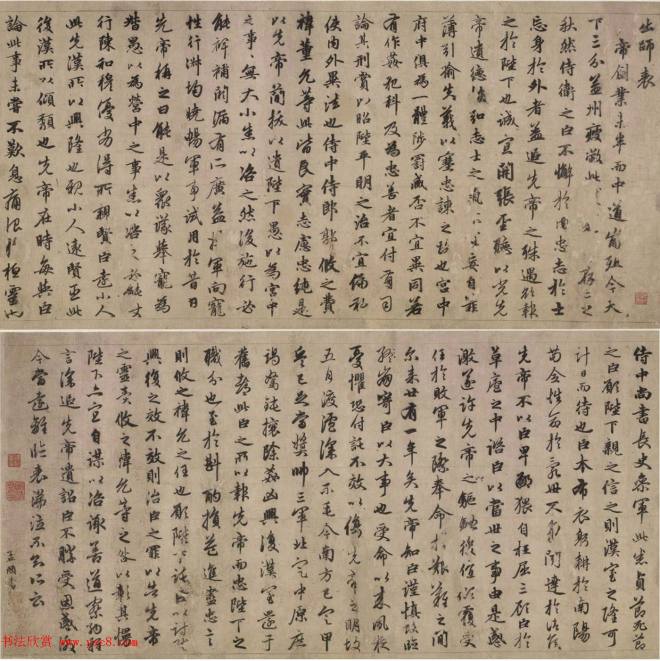 出師表
帝創業未半而中道崩殂今天
下三分益州疲敝此
秋然侍衛之臣不懈於內忠志於士
忘身於外者蓋追先帝之殊遇欲報
之於陛下也誠宜開張聖聽以光先
帝遺德恢和志士之氣不宜妄自菲
薄引喻失義以塞忠諫之路也宮中
府中俱為一體陟罰臧否不宜異同若
有作姦犯科及為忠善者宜付有司
論其刑賞以昭陛平明之治不宜偏私
使內外異法也侍中侍郎郭攸之費
禕董允等此皆良實志慮忠純是
以先帝簡拔以遺陛下愚以為宮中
之事無大小悉以咨之然後施行必
能裨補闕漏有所廣益將軍向寵
性行淑均曉暢軍事試用於昔日
先帝稱之曰能是以眾議舉寵為
督愚以為營中之事悉以咨之必能
行陳和穆優劣得所親賢臣遠小人
此先漢所以興隆也親小人遠賢臣此
後漢所以傾頹也先帝在時每與臣
論此事未嘗不歎息痛恨於桓靈也
侍中尚書長史參軍此悉貞亮死節
之臣願陛下親之信之則漢室之隆可
計日而待也臣本布衣躬耕於南陽
苟全性命於亂世不求聞達於諸侯
先帝不以臣卑鄙猥自枉屈三顧臣於
草廬之中諮臣以當世之事由是感
激遂許先帝以驅馳後值傾覆受
任於敗軍之際奉命於艱難之間
爾來廿有一年矣先帝知臣謹慎故臨
崩寄臣以大事也受命以來夙夜
憂懼恐付託不效以傷先帝之明故
五月渡瀘深入不毛今南方已定甲
兵已足當獎帥三軍北定中原庶
竭駑鈍攘除姦凶興復漢室還于
舊都此臣之所以報先帝而忠陛下之
職分也至於斟酌損益進盡忠言
則攸之禕允之任也願陛下託臣以討賊
興復之效不效則治臣之罪以告先帝
之靈責攸之禕允等之咎以彰其慢
陛下亦宜自謀以諮諏善道察納雅
言深追先帝遺詔臣不勝受恩感激
今當遠離臨表涕泣不知所云
孟頫書
书法欣赏.www.yac8.com